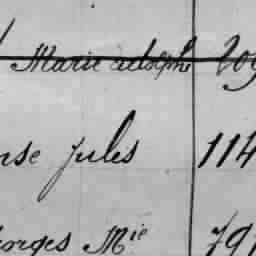 Marie adolphe 209
nse jules 114
eorges Mie 791